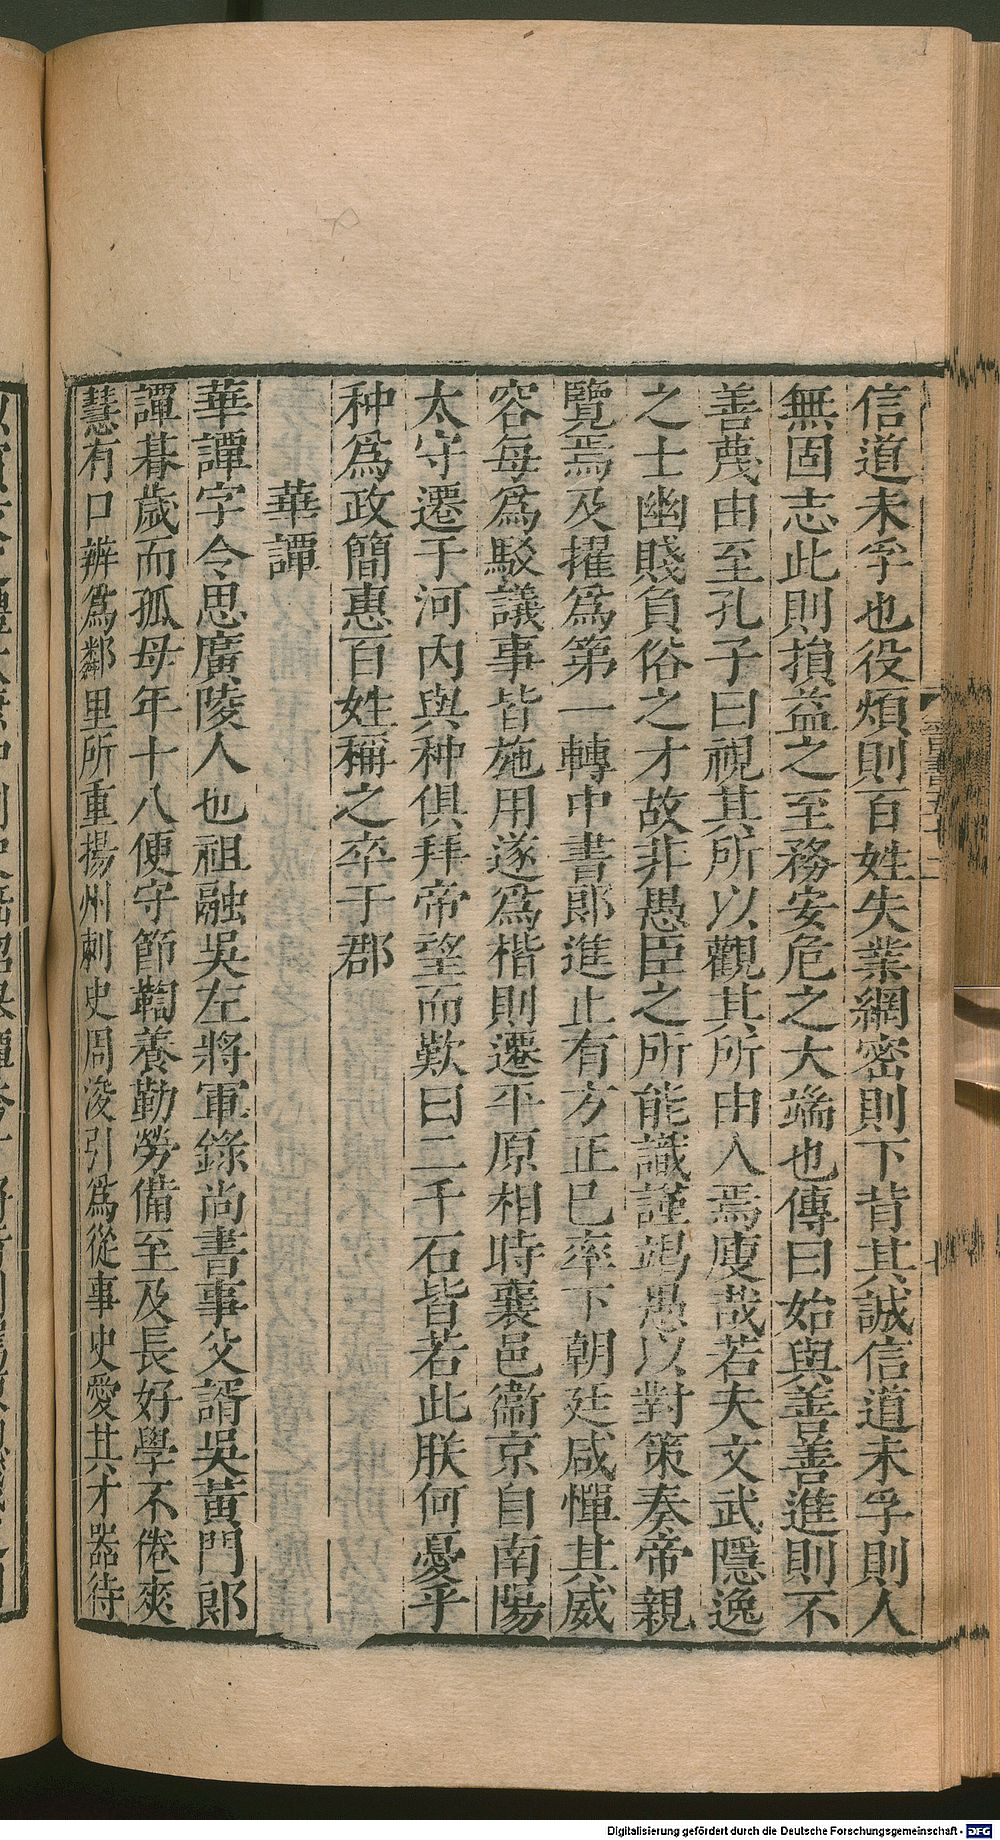 信道未孚也役煩則百姓失業網密則下背其誠信道未孚則人
無固志此則損益之至務安危之大端也傳曰始與善善進則不
善蔑由至孔子曰視其所以觀其所由人焉廋哉若夫文武隱逸
之士幽賤負俗之才故非愚臣之所能識謹竭愚以對策奏帝親
覽焉及擢爲第一轉中書郎進止有方正已率下朝廷咸憚其威
容每爲駁議事皆施用遂爲楷則遷平原相時襄邑衞京自南陽
太守遷于河內與种俱拜帝望而歎曰二千石皆若此朕何憂乎
种爲政簡惠百姓稱之卒于郡
華譚
華譚字令思廣陵人也祖融吳左將軍錄尚書事父諝吳黃門郎
譚朞歲而孤母年十八便守節鞠養勤勞備至及長好學不倦爽
慧有口辨爲鄰里所重揚州刺史周浚引爲從事史愛其才器待
Digitalisierung gefördert durch die Deutsche Forschungsgemeinschaft - DFG